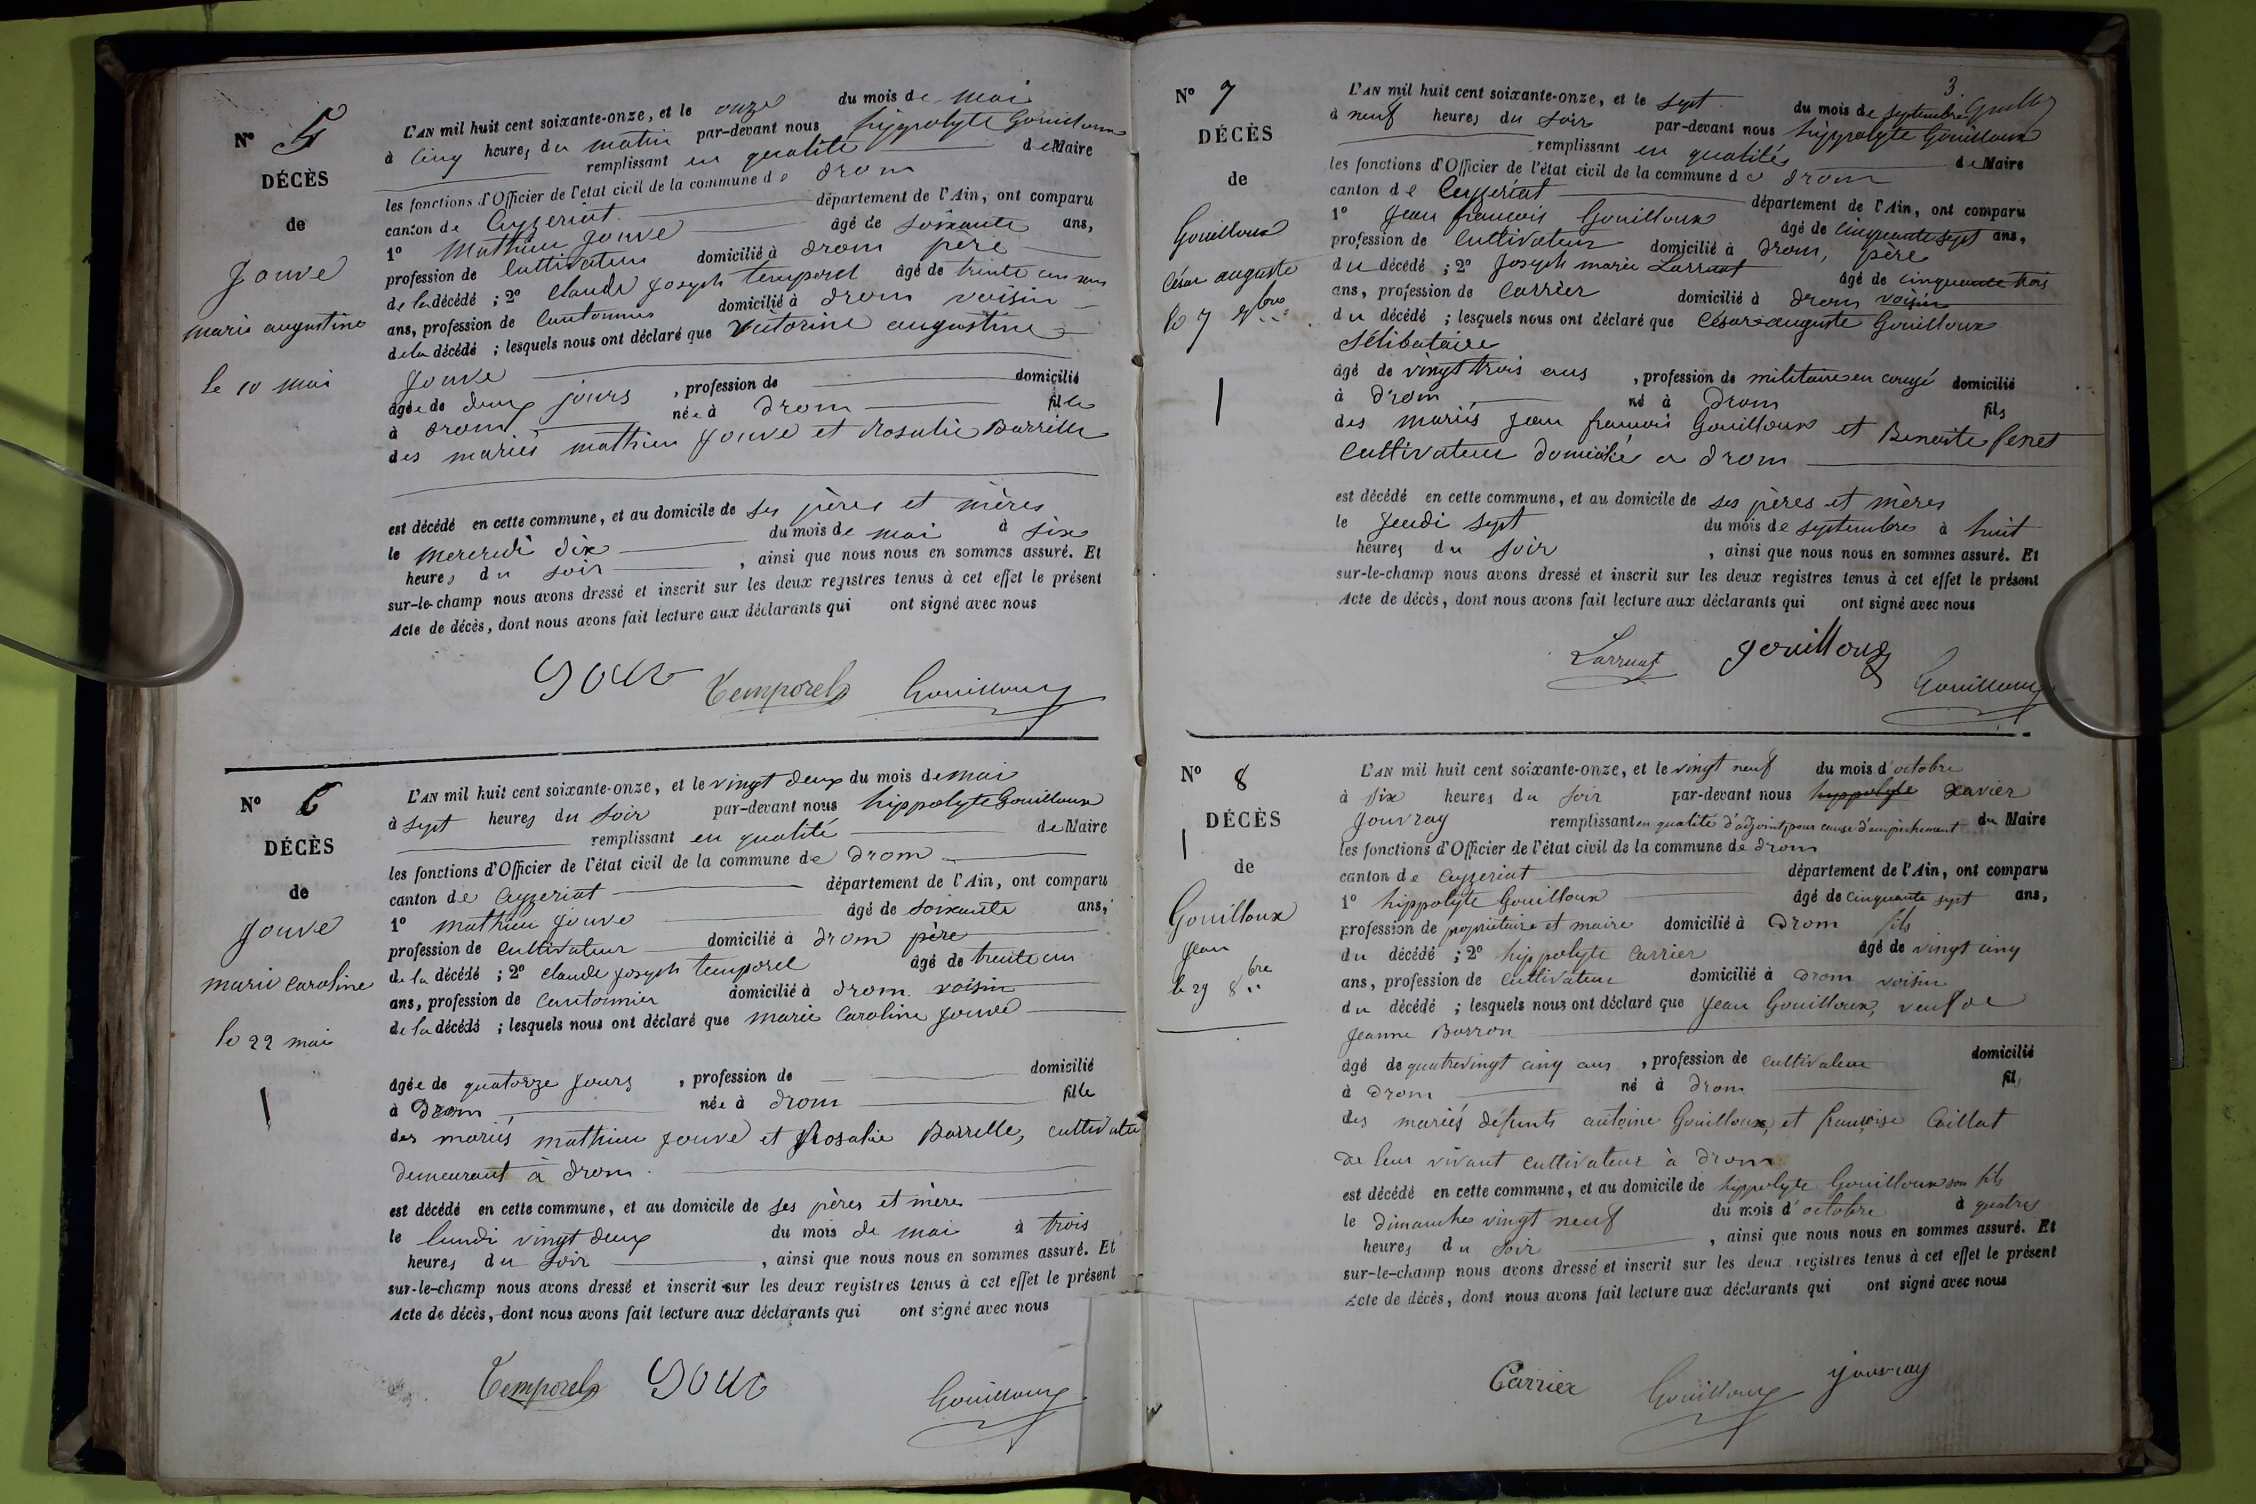 N° 5
DÉCÈS
de
Jouve
marie augustine
le 10 mai
L'AN mil huit cent soixante-onze, et le onze du mois de mai
à cinq heures du matin par-devant nous hippolyte Gouilloux
remplissant en qualité de Maire
les fonctions d'Officier de l'état civil de la commune de drom
canton de Ceyzeriat département de l'Ain, ont comparu
1° Mathieu Jouve âgé de soixante ans,
profession de Cultivateur domicilié à drom père
de la décédé ; 2° Claude Joseph temporel âgé de trente un ans
ans, profession de Cantonnier domicilié à drom voisin
de la décédé ; lesquels nous ont déclaré que augustine
Jouve
âgée de deux jours , profession de domicilié
à drom née à drom fille
des mariés mathieu Jouve et Rosalie Barrelle
est décédé en cette commune, et au domicile de ses pères et mères
le mercredi dix du mois de mai à six
heures du soir , ainsi que nous nous en sommes assuré. Et
sur-le-champ nous avons dressé et inscrit sur les deux registres tenus à cet effet le présent
Acte de décès, dont nous avons fait lecture aux déclarants qui ont signé avec nous
Temporel Gouilloux
N° 6
DÉCÈS
de
Jouve
marie caroline
le 22 mai
L'AN mil huit cent soixante-onze, et le vingt deux du mois de mai
à sept heures du soir par-devant nous hippolyte Gouilloux
remplissant en qualité de Maire
les fonctions d'Officier de l'état civil de la commune de drom
canton de Ceyzeriat département de l'Ain, ont comparu
1° mathieu Jouve âgé de soixante ans,
profession de cultivateur domicilié à drom père
de la décédé ; 2° claude joseph temporel âgé de trente un
ans, profession de cantonnier domicilié à drom voisin
de la décédé ; lesquels nous ont déclaré que marie Caroline Jouve
âgée de quatorze jours , profession de domicilié
à Drom née à drom fille
des mariés mathieu Jouve et Rosalie Barrelle, cultivateur
demeurant à drom.
est décédé en cette commune, et au domicile de ses pères et mère
le lundi vingt deux du mois de mai à trois
heures du soir , ainsi que nous nous en sommes assuré. Et
sur-le-champ nous avons dressé et inscrit sur les deux registres tenus à cet effet le présent
Acte de décès, dont nous avons fait lecture aux déclarants qui ont signé avec nous
Temporel Gouilloux
3.
N° 7
DÉCÈS
de
Gouilloux
César auguste
le 7 7bre
L'AN mil huit cent soixante-onze, et le sept du mois de septembre
à neuf heures du soir par-devant nous hippolyte Gouilloux
remplissant en qualités de Maire
les fonctions d'Officier de l'état civil de la commune de drom
canton de Ceyzeriat département de l'Ain, ont comparu
1° Jean françois Gouilloux âgé de cinquante sept ans,
profession de Cultivateur domicilié à drom, père
du décédé ; 2° Joseph marie Larruat âgé de cinquante trois
ans, profession de Carrier domicilié à drom voisin
du décédé ; lesquels nous ont déclaré que César auguste Gouilloux
sélibataire
âgé de vingt trois ans , profession de militaire en congé domicilié
à drom né à drom fils
des mariés Jean francois Gouilloux et Benoite Penet
Cultivateur domicilié a drom
est décédé en cette commune, et au domicile de ses pères et mères
le Jeudi sept du mois de septembre à huit
heures du soir , ainsi que nous nous en sommes assuré. Et
sur-le-champ nous avons dressé et inscrit sur les deux registres tenus à cet effet le présent
Acte de décès, dont nous avons fait lecture aux déclarants qui ont signé avec nous
Larruat gouilloux
Gouilloux
N° 8
DÉCÈS
de
Gouilloux
Jean
le 29 8bre
L'AN mil huit cent soixante-onze, et le vingt neuf du mois d'octobre
à six heures du soir par-devant nous hyppolyte Xavier
Jouvray remplissant en qualité d'adjoint pour cause d'empechement du Maire
les fonctions d'Officier de l'état civil de la commune de drom
canton de Ceyzeriat département de l'Ain, ont comparu
1° hippolyte Gouilloux âgé de cinquante sept ans,
profession de propriétaire et maire domicilié à Drom fils
du décédé ; 2° hippolyte Carrier âgé de vingt cinq
ans, profession de cultivateur domicilié à drom voisin
du décédé ; lesquels nous ont déclaré que Jean Gouilloux, veuf de
Jeanne Barron
âgé de quatrevingt cinq ans , profession de cultivateur domicilié
à drom né à drom fils
des mariés défunts antoine Gouilloux, et françoise Caillat
de leur vivant cultivateur à drom
est décédé en cette commune, et au domicile de hippolyte Gouilloux son fils
le dimanche vingt neuf du mois d'octobre à quatre
heures du soir , ainsi que nous nous en sommes assuré. Et
sur-le-champ nous avons dressé et inscrit sur les deux registres tenus à cet effet le présent
Acte de décès, dont nous avons fait lecture aux déclarants qui ont signé avec nous
Carrier Gouilloux jouvray